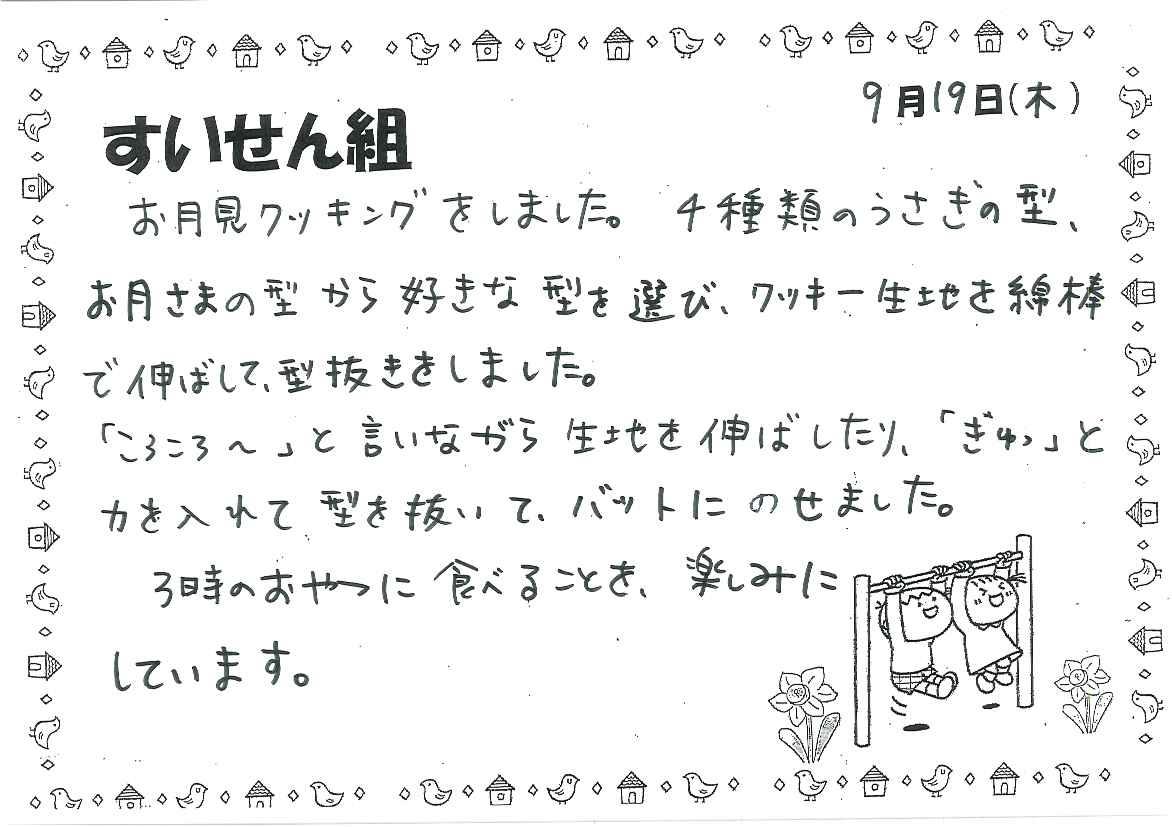 9月19日(木)
すいせん組
お月見クッキングをしました。 4種類のうさぎの型、
お月さまの型から好きな型を選び、クッキー生地を綿棒
で伸ばして、型抜きをしました。
「ころころ～」と言いながら生地を伸ばしたり、「ぎゅっ」と
力を入れて型を抜いて、バットにのせました。
3時のおやつに食べることを、楽しみに
しています。